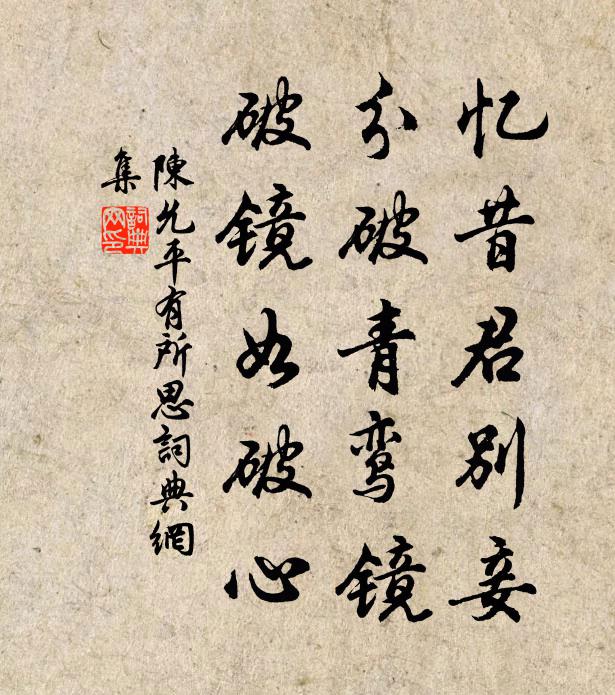 忆昔君别妾
分破青鸾镜
破镜如破心
陳允平有所思詞典網
集
詞典
网印